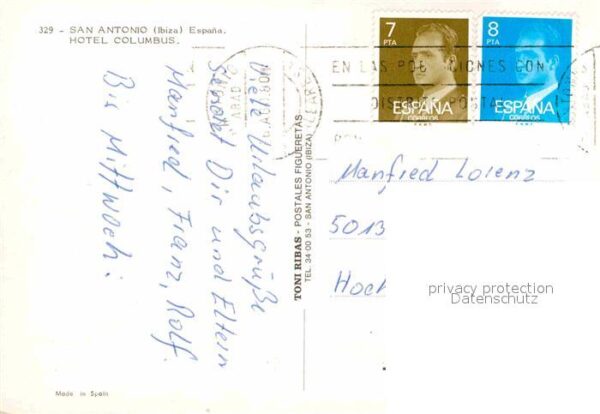 329 - SAN ANTONIO (Ibiza) España.
HOTEL COLUMBUS.
7
PTA
ESPAÑA
CORREOS
8
PTA
ESPAÑA
CORREOS
EN LAS POB CIONES CON
DISTRITO POSTAL
Viele Urlaubsgrüße
sendet Dir und Eltern
Manfred, Franz, Rolf.
Bis Mittwoch!
TONI RIBAS - POSTALES FIGUERETAS
TEL. 34 00 53 - SAN ANTONIO (IBIZA)
Manfred Lorenz
5013
Hoch
privacy protection
Datenschutz
Made in Spain